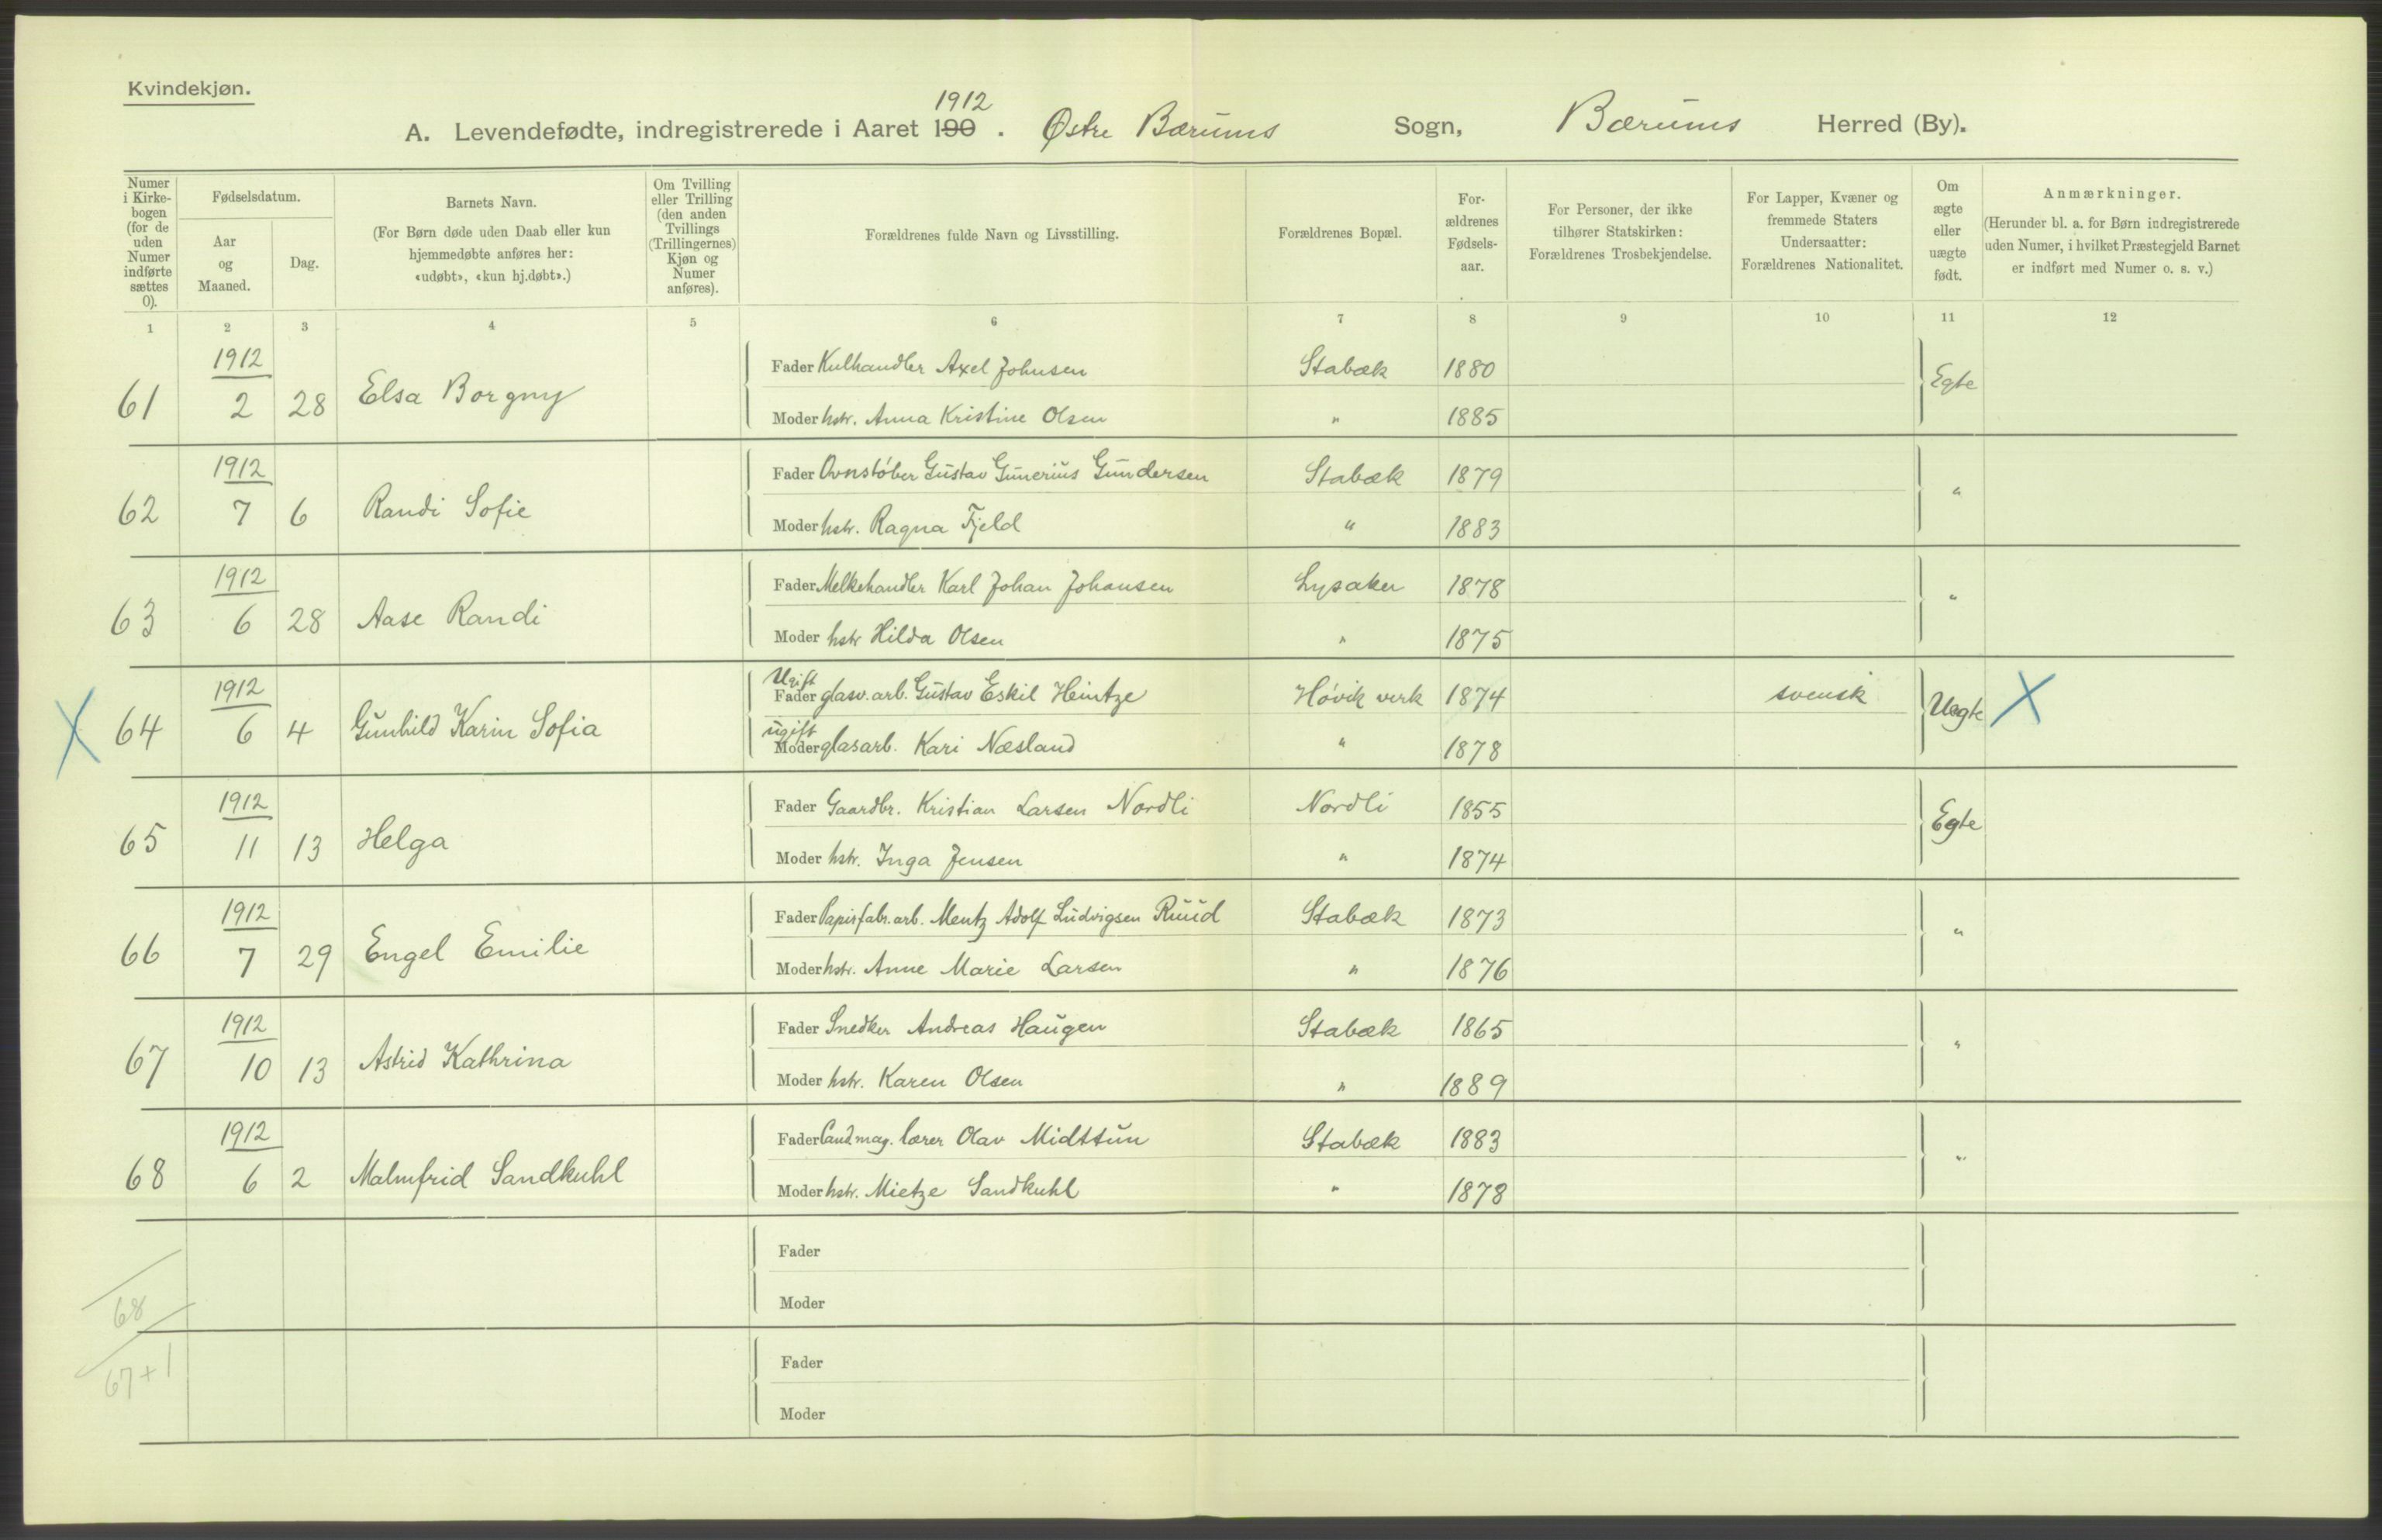 Kvindekjøn.
1912
A. Levendefødte, indregistrerede i Aaret 190 . Østre Bærums Sogn, Bærums Herred (By).
Numer i Kirkebogen (for de uden Numer indførte sættes 0).
Fødselsdatum.
Aar og Maaned.
Dag.
Barnets Navn.
(For Børn døde uden Daab eller kun hjemmedøbte anføres her: «udøbt», «kun hj.døbt».)
Om Tvilling eller Trilling (den anden Tvillings (Trillingernes) Kjøn og Numer anføres).
Forældrenes fulde Navn og Livsstilling.
Forældrenes Bopæl.
For-ældrenes Fødsels-aar.
For Personer, der ikke tilhører Statskirken: Forældrenes Trosbekjendelse.
For Lapper, Kvæner og fremmede Staters Undersaatter: Forældrenes Nationalitet.
Om ægte eller uægte født.
Anmærkninger.
(Herunder bl. a. for Børn indregistrerede uden Numer, i hvilket Præstegjeld Barnet er indført med Numer o. s. v.)
1 2 3 4 5 6 7 8 9 10 11 12
1912 Fader Kulhandler Axel Johnsen Stabæk 1880 Egte
61 2 28 Elsa Borgny
Moder hstr. Anna Kristine Olsen " 1885
1912 Fader Ovnstöber Gustav Gunerius Gundersen Stabæk 1879 "
62 7 6 Randi Sofie
Moder hstr. Ragna Fjeld " 1883
1912 Fader Melkehandler Karl Johan Johansen Lysaker 1878 "
63 6 28 Aase Randi
Moder hstr Hilda Olsen " 1875
Ugift
1912 Fader glasv.arb. Gustav Eskil Heintze Hövik verk 1874 svensk Uegte X
X 64 6 4 Gunhild Karin Sofia
ugift
Moder glasarb. Kari Næsland " 1878
1912 Fader Gaardbr. Kristian Larsen Nordli Nordli 1855 Egte
65 11 13 Helga
Moder hstr. Inga Jensen " 1874
1912 Fader Papirfabr.arb. Mentz Adolf Ludvigsen Ruud Stabæk 1873 "
66 7 29 Engel Emilie
Moder hstr. Anne Marie Larsen " 1876
1912 Fader Snedker Andreas Haugen Stabæk 1865 "
67 10 13 Astrid Kathrina
Moder hstr. Karen Olsen " 1889
1912 Fader Cand.mag. lærer Olav Midttun Stabæk 1883 "
68 6 2 Malmfrid Sandkuhl
Moder hstr. Mietze Sandkuhl " 1878
Fader
68
Moder
Fader
67+1
Moder